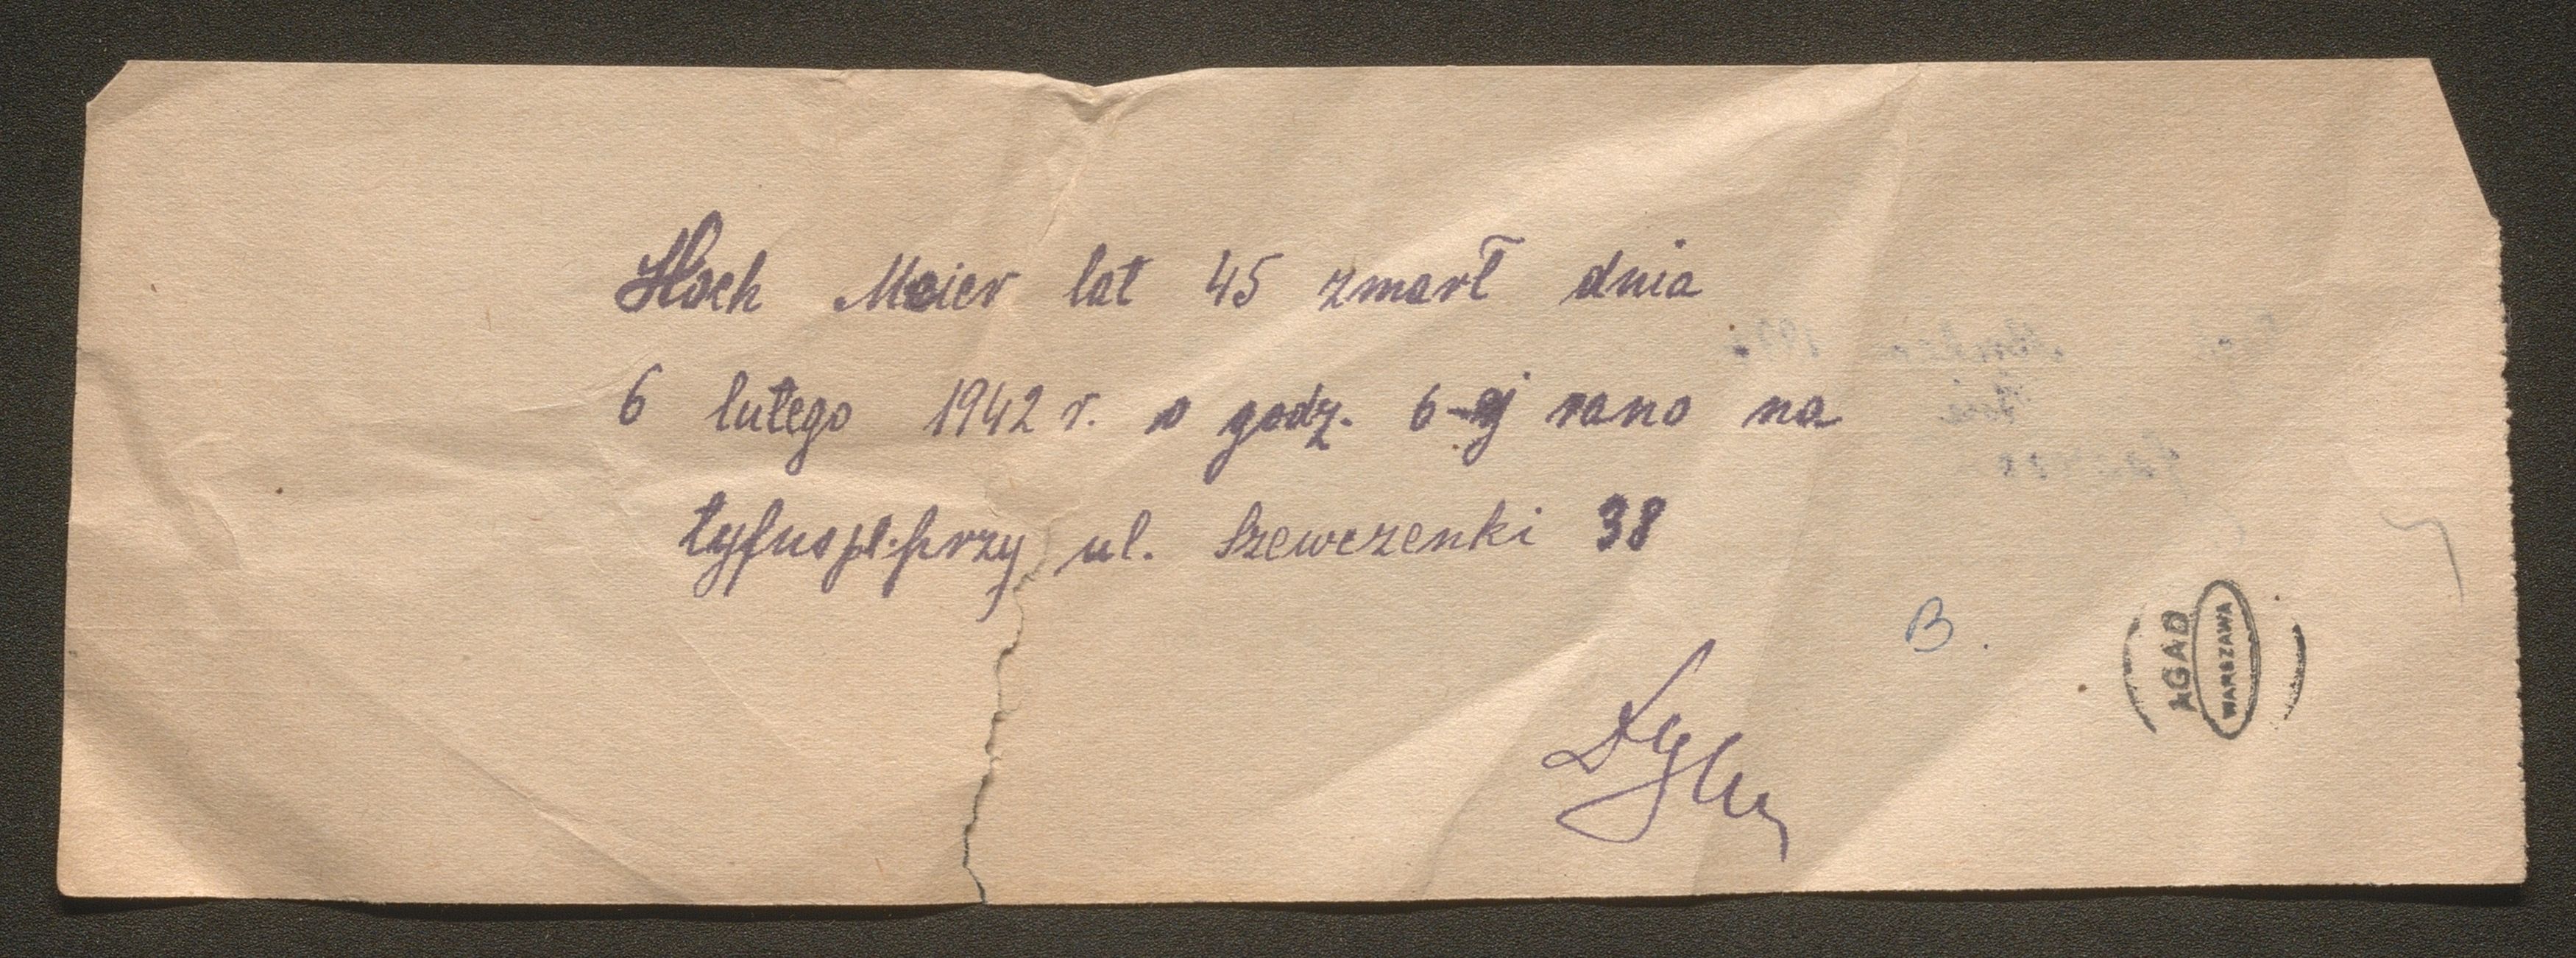 Hoch Meier lat 45 zmarł dnia
6 lutego 1942 r. o godz. 6-ej rano na
tyfus pl. przy ul. Szewczenki 38
B.
AGAD
WARSZAWA